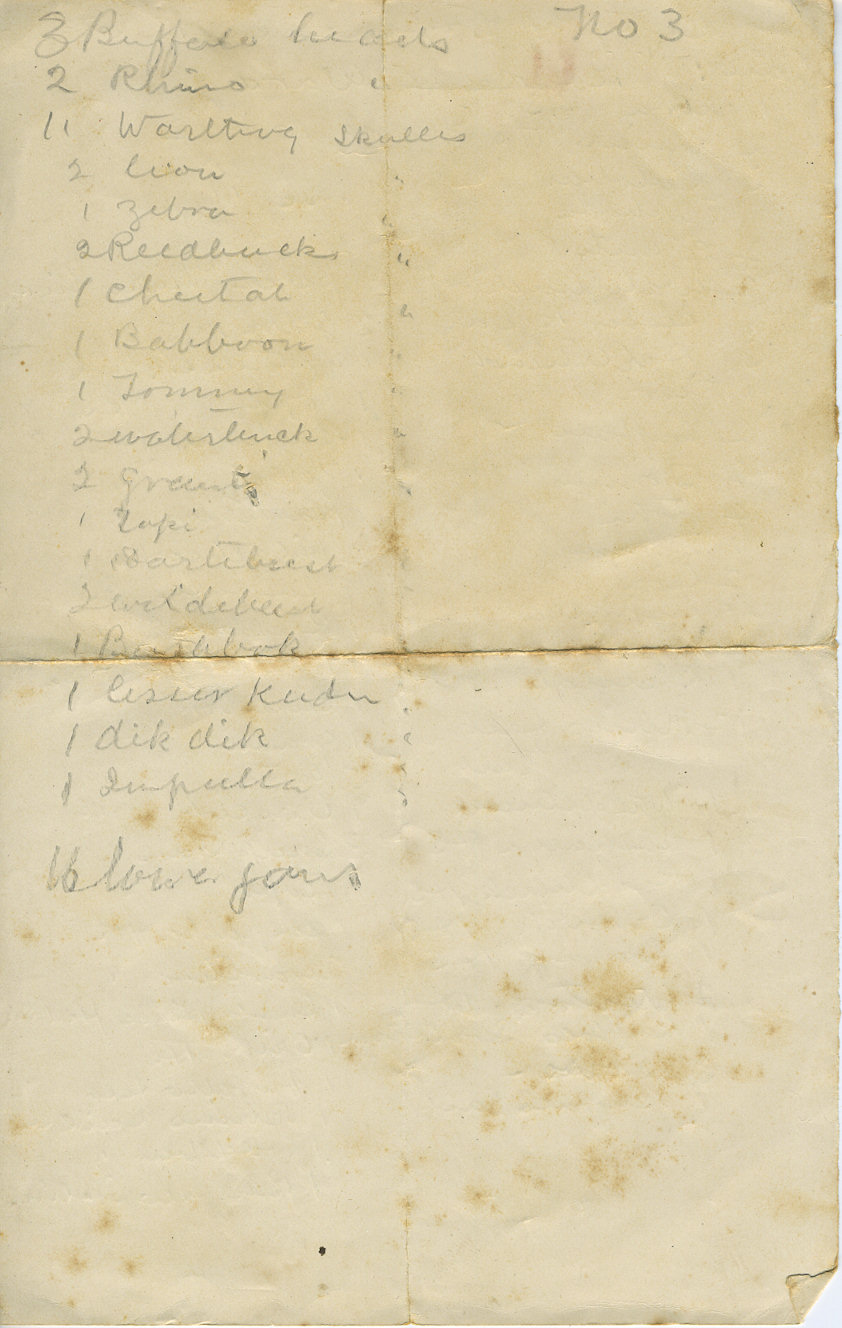 No 3
3 Buffalo heads
2 Rhino "
11 Warthog Skulls
2 lion "
1 Zebra "
2 Reedbucks "
1 Cheetah "
1 Babboon "
1 Tommy "
2 waterbuck "
2 Grant's "
1 Topi
1 Hartebeest "
2 wildebeest
1 Bushbok
1 lesser Kudu "
1 dik dik "
1 Impalla "
16 lower jaws